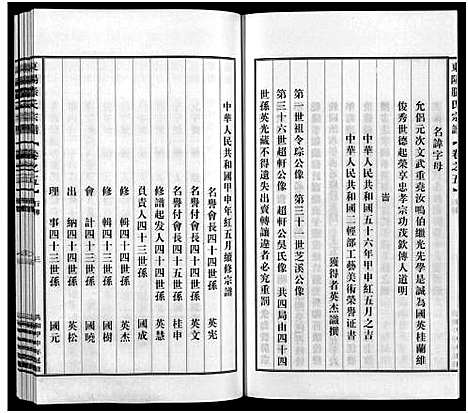 東陽滕氏宗譜【卷之五】
名諱字母
允侶元次文武重堯汝鳴伯繼光先學是誠為國英桂蘭維
俊秀世德起榮享忠孝宗功茂欽傳人道明
耑
中華人民共和國五十六年甲申紅五月之吉
中華人民共和國二輕部工藝美術榮譽证書
獲得者英杰謹撰
第一世祖令琮公像 第三十一世芝溪公像
第三十六世超軒公像 超軒公吳氏像 共四局由四十四
世孫英光藏不得遺失出賣轉讓違者必究重罰
中華人民共和國甲申年紅五月續修宗譜
名譽會長四十四世孫 英宪
名譽付會長四十四世孫 英文
名譽付會長四十五世孫 桂申
修譜起发人四十四世孫 英慧
負責人四十三世孫 國成
修輯四十四世孫 英杰
修輯四十三世孫 國樹
會計四十三世孫 國曉
出納四十四世孫 英松
理事四十三世孫 國元
東陽滕氏宗譜【卷之五】